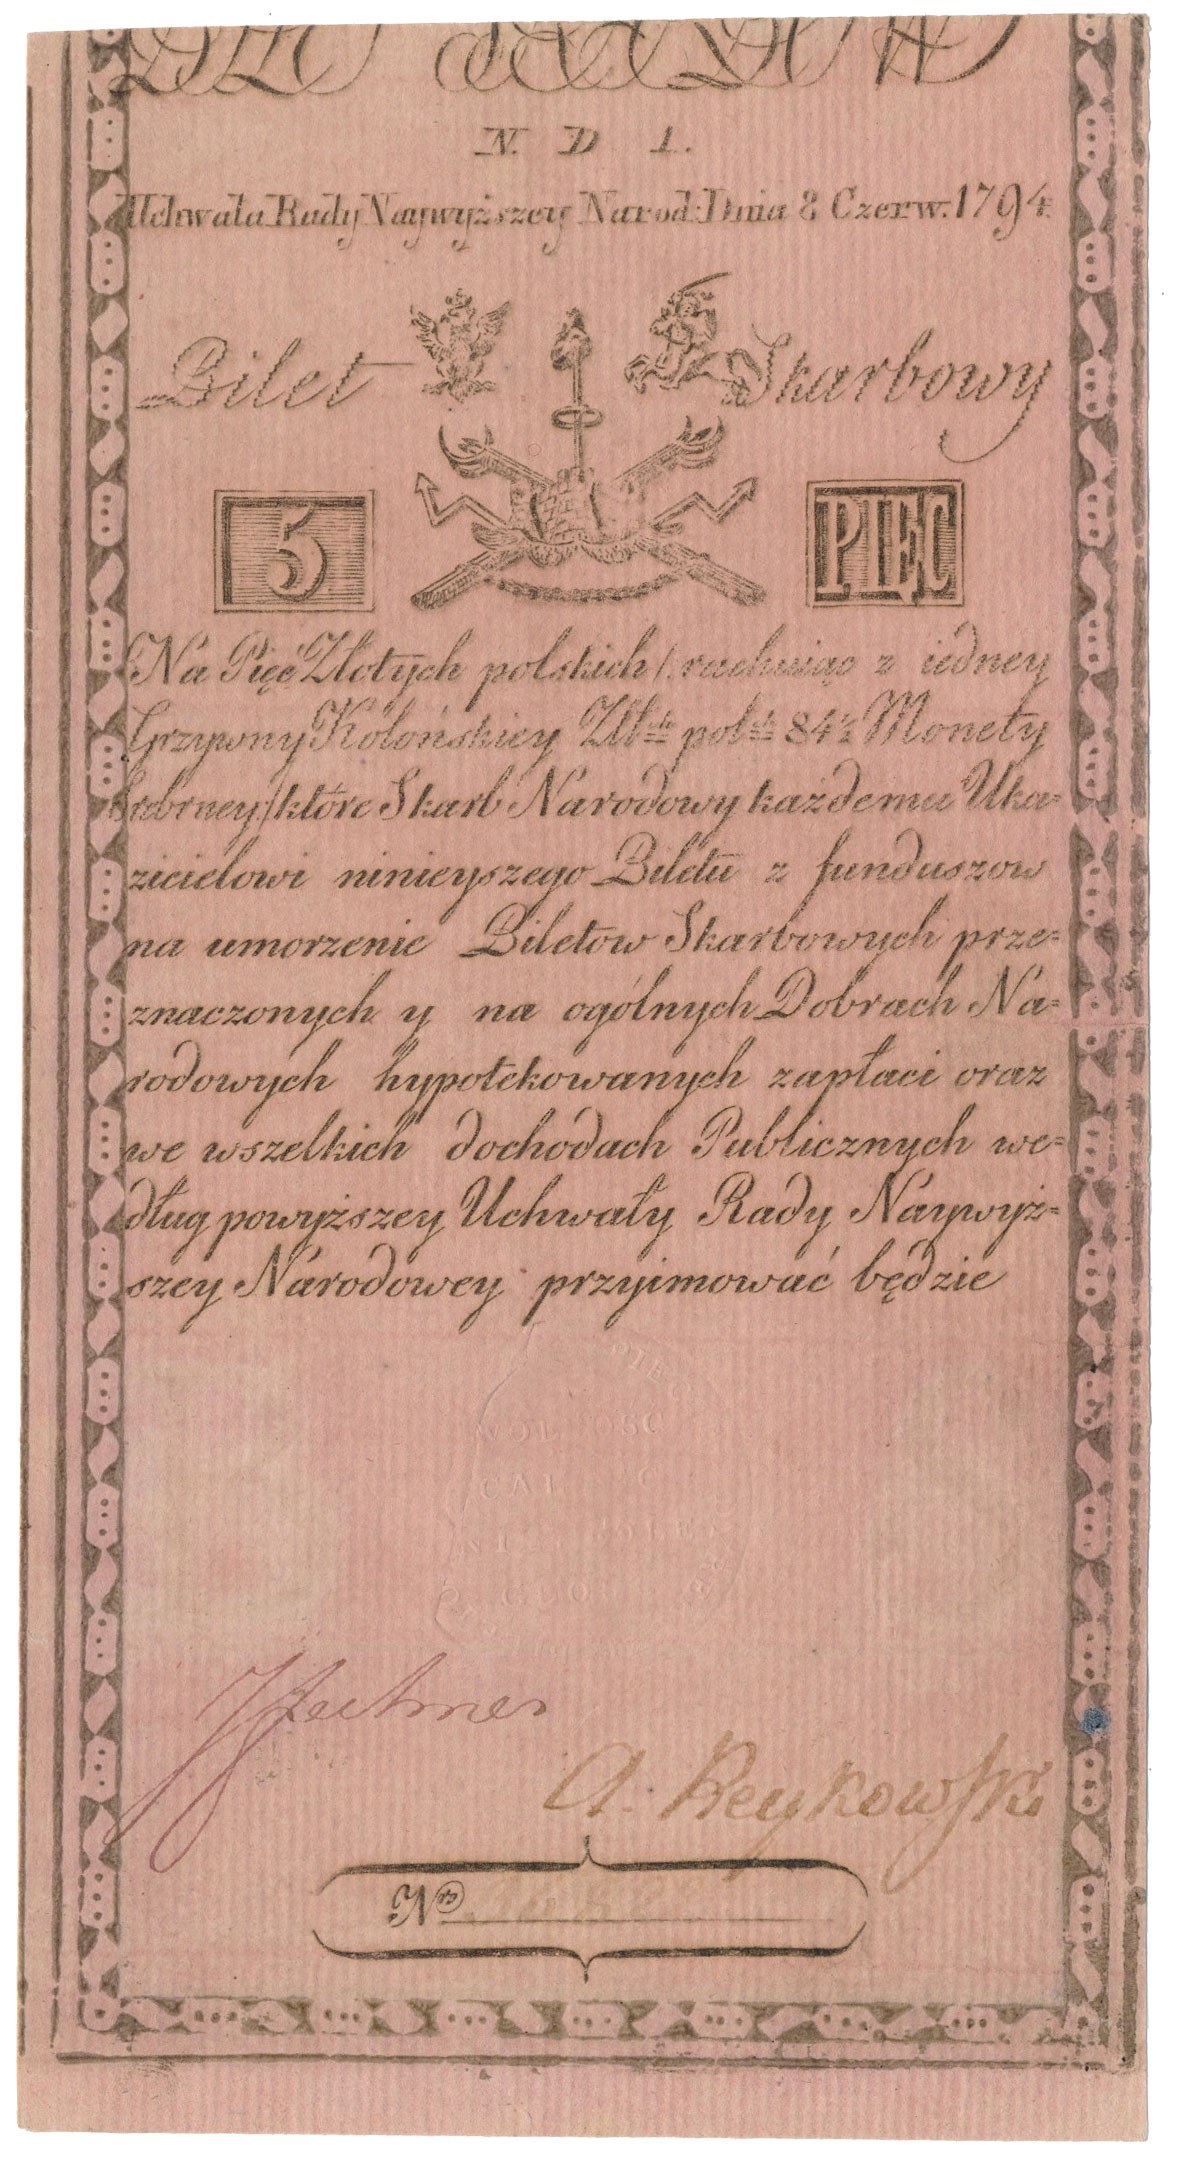 N. D 1.
Uchwała Rady Naywyższey Narod: Dnia 8 Czerw: 1794.
Bilet Skarbowy
5 PIĘC
Na Pięć Złotych polskich /: rachuiąc z iedney
Grzywny Kolońskiey Złł:ch pol:ch 84½ Monety
Srebrney:/ które Skarb Narodowy każdemu Uka=
zicielowi ninieyszego Biletu z funduszow
na umorzenie Biletow Skarbowych prze=
znaczonych y na ogólnych Dobrach Na=
rodowych hypotekowanych zapłaci oraz
we wszelkich dochodach Publicznych we=
dług powyższey Uchwały Rady Naywyż=
szey Narodowey przyimować będzie
WOLNOSC
CAŁOSC
NIEPODLEG
A. Reykowski
Nro